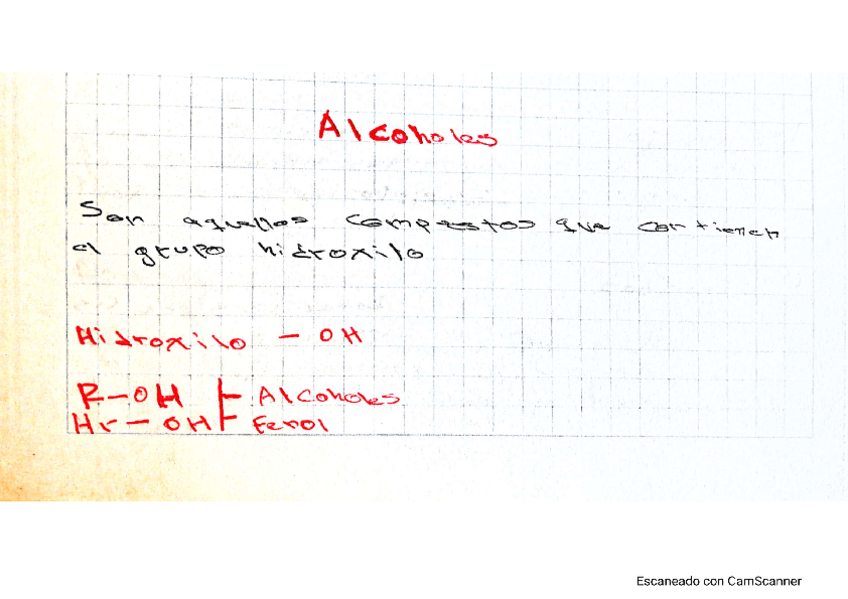 Alcoholes
Son aquellos compuestos que contienen
el grupo hidroxilo
Hidroxilo - OH
R-OH Alcoholes
Hr-OH Fenol
Escaneado con CamScanner